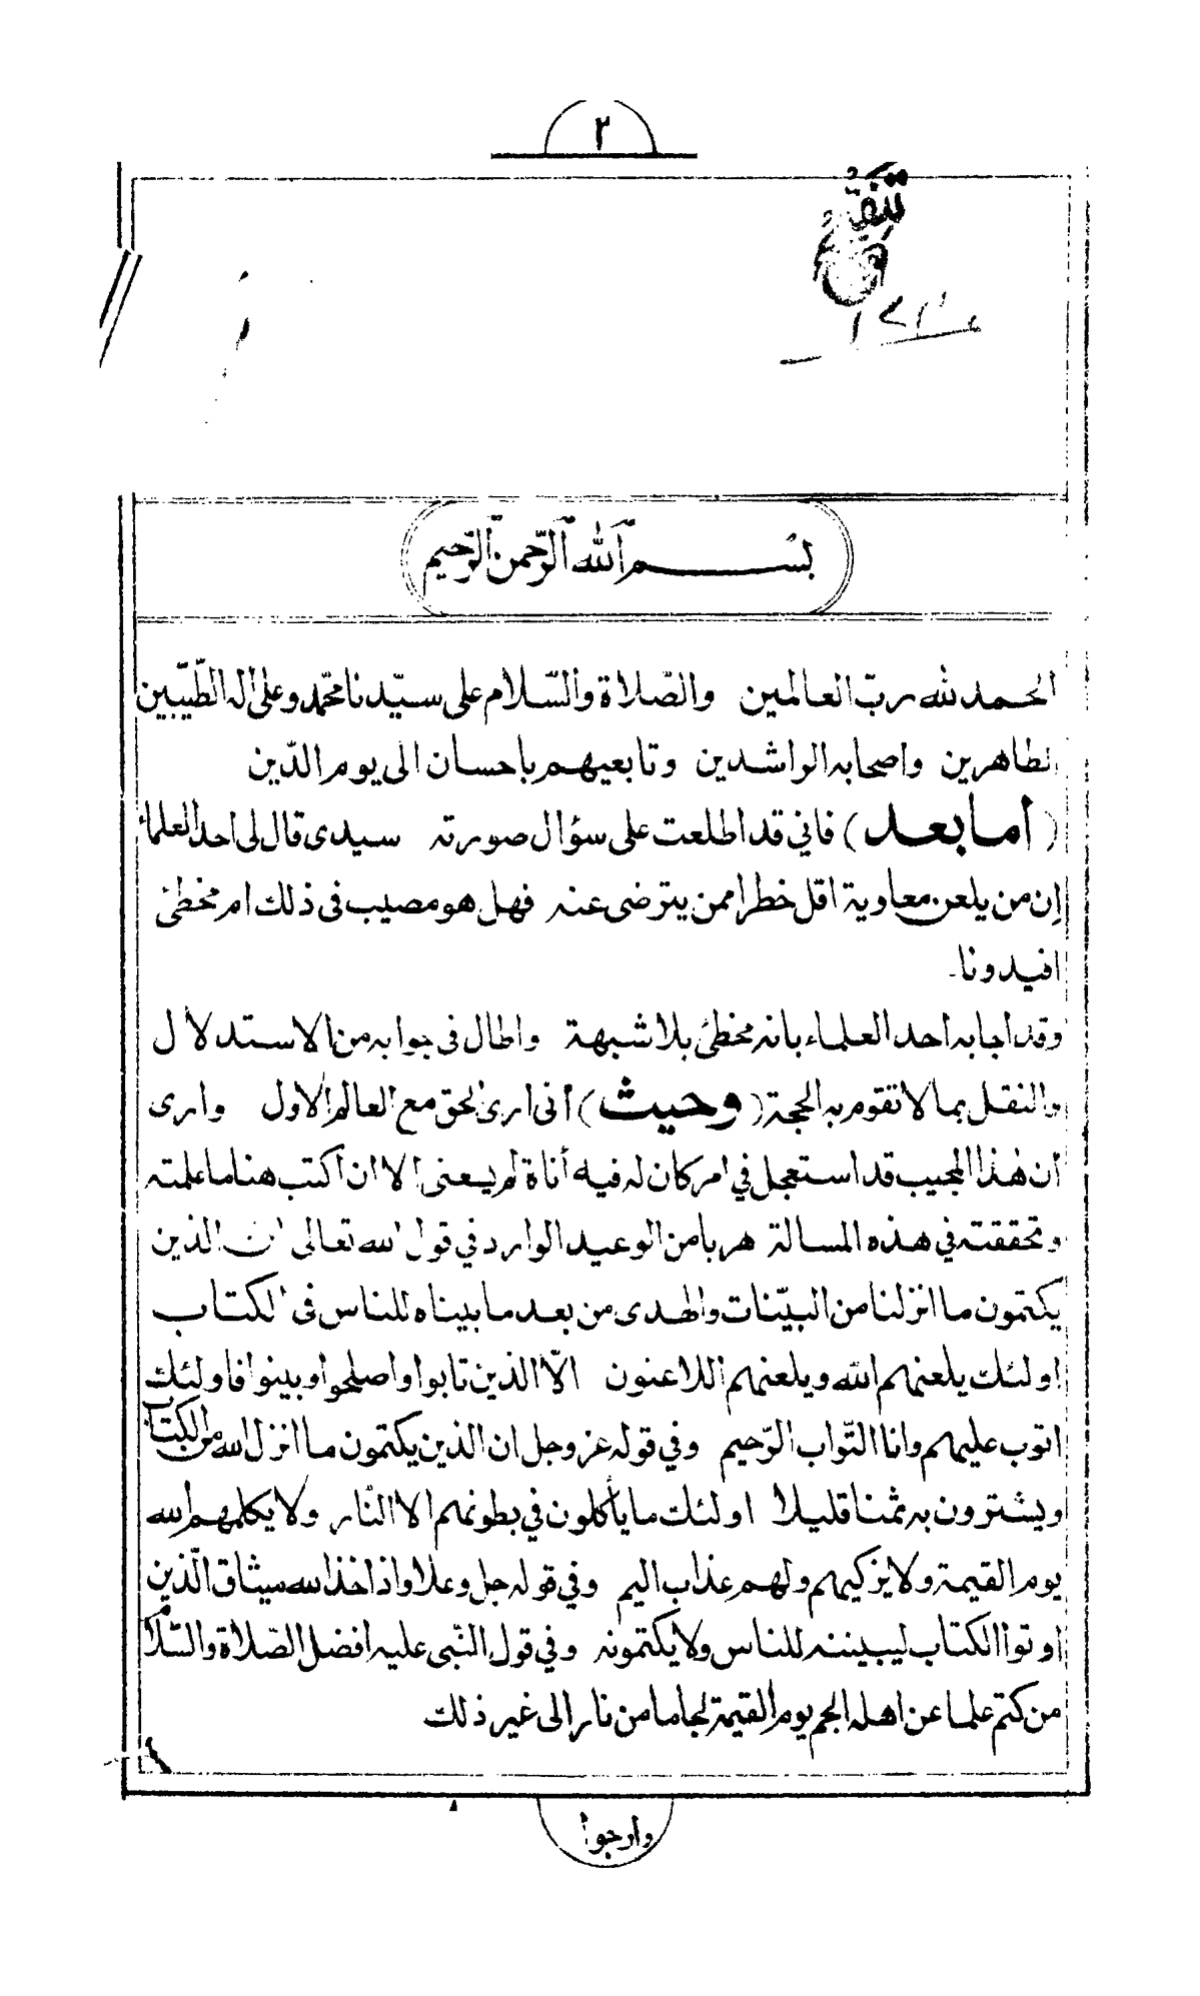 ٢
بسم الله الرحمن الرحيم
الحمد لله رب العالمين والصّلاة والسّلام على سيّدنا محمّد وعلى اله الطّيّبين
لطاهرين واصحابه الراشدين وتابعيهم باحسان الى يوم الدّين
(أما بعد) فاني قد اطلعت على سؤال صورته سيدى قال لى احد العلماء
إن من يلعن معاوية اقل خطرا ممن يترضى عنه فهل هو مصيب فى ذلك ام مخطئ
افيدونا.
وقد اجابه احد العلماء بانه مخطئ بلا شبهة واطال فى جوابه من الاستدلال
والنقل بما لا تقوم به الحجة (وحيث) أنى ارى الحق مع العالم الاول وارى
ان هذا المجيب قد استعجل في امر كان له فيه أناة لم يسعنى الا ان اكتب هنا ما علمته
وتحققته في هذه المسالة هربا من الوعيد الوارد في قول الله تعالى ان الذين
يكتمون ما انزلنا من البيّنات والهدى من بعد ما بيناه للناس فى الكتاب
اولئك يلعنهم الله ويلعنهم اللاعنون الاّ الذين تابوا واصلحوا وبينوا فاولئك
اتوب عليهم وانا التّواب الرّحيم وفي قوله عز وجل ان الذين يكتمون ما انزل الله من الكتاب
ويشترون به ثمنا قليلا اولئك ما يأكلون في بطونهم الا النّار ولا يكلمهم الله
يوم القيمة ولا يزكيهم ولهم عذاب اليم وفي قوله جل وعلا واذ اخذ الله ميثاق الّذين
اوتوا الكتاب ليبيننه للناس ولا يكتمونه وفي قول النّبى عليه افضل الصّلاة والسّلام
من كتم علما عن اهله الجم يوم القيمة لجاما من نار الى غير ذلك
وارجوا